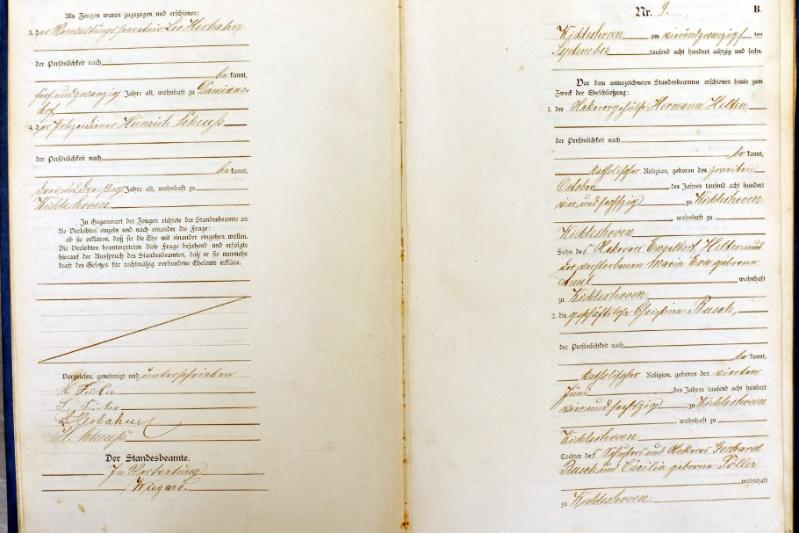 Als Zeugen waren zugezogen und erschienen:
3. der Verwaltungssecretair Leo Herhahn
der Persönlichkeit nach
be kannt,
fünfundzwanzig Jahre alt, wohnhaft zu Damians-
hof
4. der Polizeidiener Heinrich Schuß
der Persönlichkeit nach
be kannt,
dreiunddreißig Jahre alt, wohnhaft zu
Hückelhoven
In Gegenwart der Zeugen richtete der Standesbeamte an
die Verlobten einzeln und nach einander die Frage:
ob sie erklären, daß sie die Ehe mit einander eingehen wollen.
Die Verlobten beantworteten diese Frage bejahend und erfolgte
hierauf der Ausspruch des Standesbeamten, daß er sie nunmehr
kraft des Gesetzes für rechtmäßig verbundene Eheleute erkläre.
Vorgelesen, genehmigt und unterschrieben
L. Herhahn
H. Schuß
Der Standesbeamte.
In Vertretung
Nr. 9.
B.
am vierundzwanzigsten
September tausend acht hundert achtzig und sechs.
Vor dem unterzeichneten Standesbeamten erschienen heute zum
Zweck der Eheschließung:
1. der Ackerergehülfe Hermann Helten,
der Persönlichkeit nach
be kannt,
katholischer Religion, geboren den zweiten
October des Jahres tausend acht hundert
vier und sechszig zu
wohnhaft zu
Sohn des Ackerers Engelbert Helten und
der verstorbenen Maria Eva geborene
wohnhaft
zu
2. die geschäftslose Christina Busch,
der Persönlichkeit nach
be kannt,
katholischer Religion, geboren den vierten
Juni des Jahres tausend acht hundert
vier und sechszig zu
wohnhaft zu
Tochter des Schusters und Ackerers Gerhard
Busch und Cäcilia geborene Töller
wohnhaft
zu